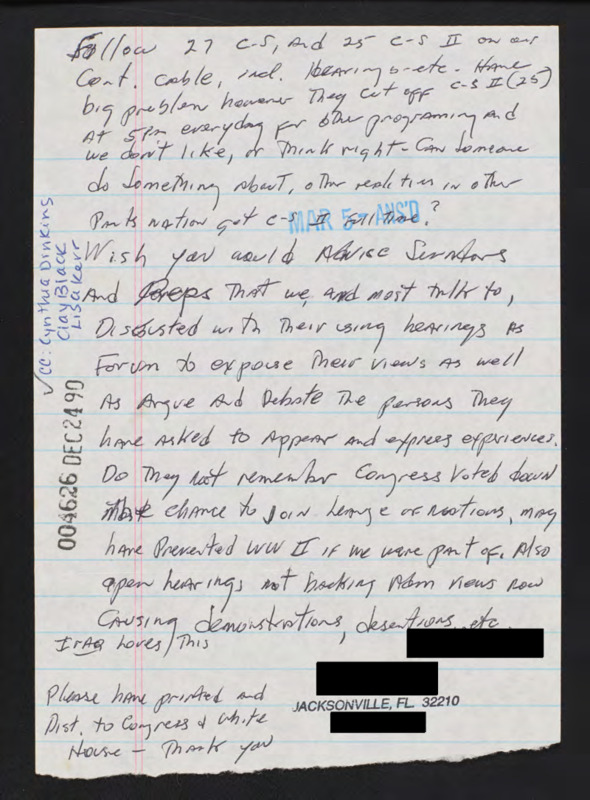 Follow 27 C-S, and 25 C-S II on our
Cont. cable, incl. Hearings-etc. Have
big problem however They cut off C-S II (25)
at 5pm everyday for other programing and
we don't like, or Think right - Can Someone
do Something About, other in other
Parts nation get C-S II full time?
MAR 5 - ANS'D
Wish you would Advise Senators
And Reps That we, and most talk to,
Disgusted with Their using hearings As
Forum to expouse Their views As well
As Argue And Debate The persons They
have Asked to Appear and express experiences.
Do They not remember Congress Voted down
chance to Join Leauge of Nations, may
have Prevented WW II if we were part of. Also
open hearings not backing Adm views now
Causing demonstrations, desertions, etc.
IrAq Loves This
JACKSONVILLE, FL 32210
Please have printed and
Dist. to Congress & White
House - Thank you
✓CC: Cynthia Dinkins
Clay Black
Lisa Kerr
004626 DEC 24 90